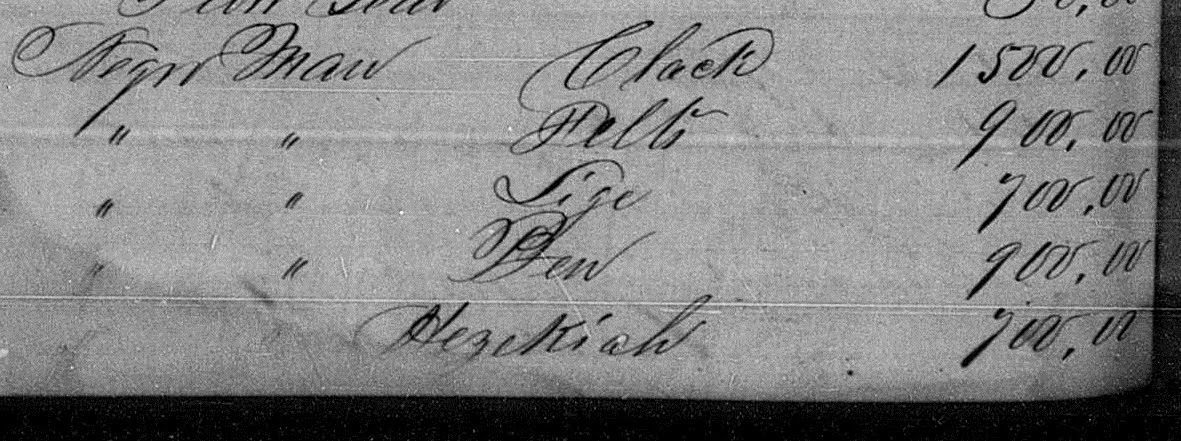 Negro Man Clack 1500,00
" " Felts 900,00
" " Lige 700,00
" " Ben 900,00
Hezekiah 700,00